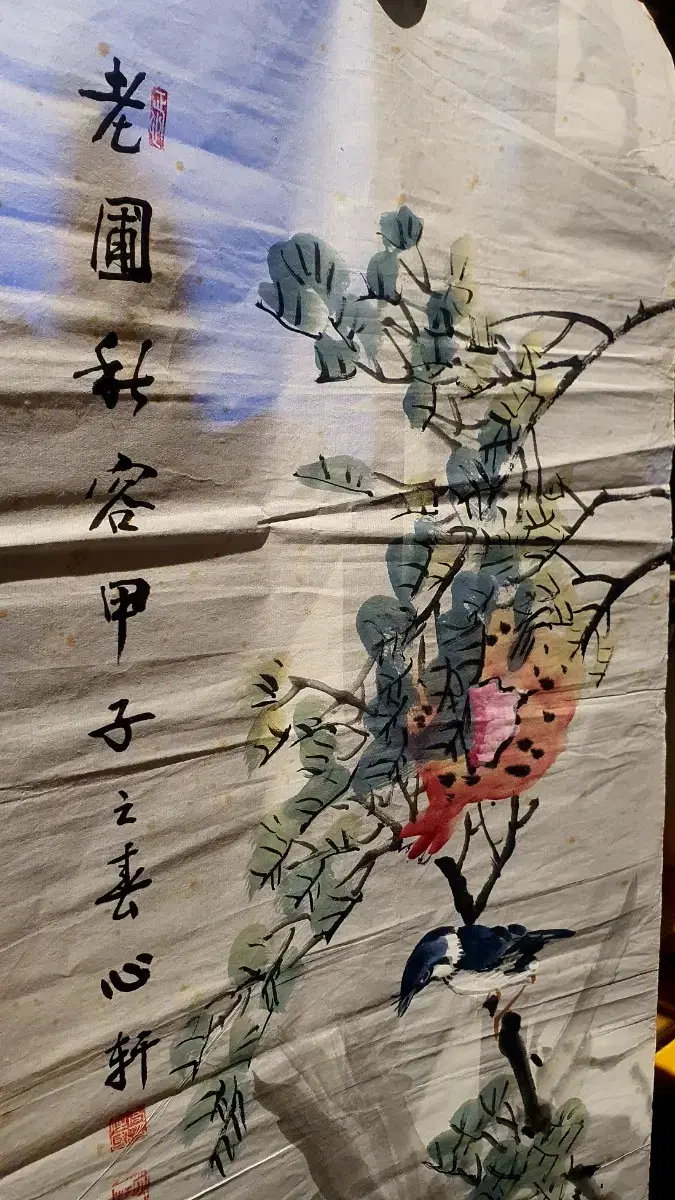 老圃秋容甲子之春心軒